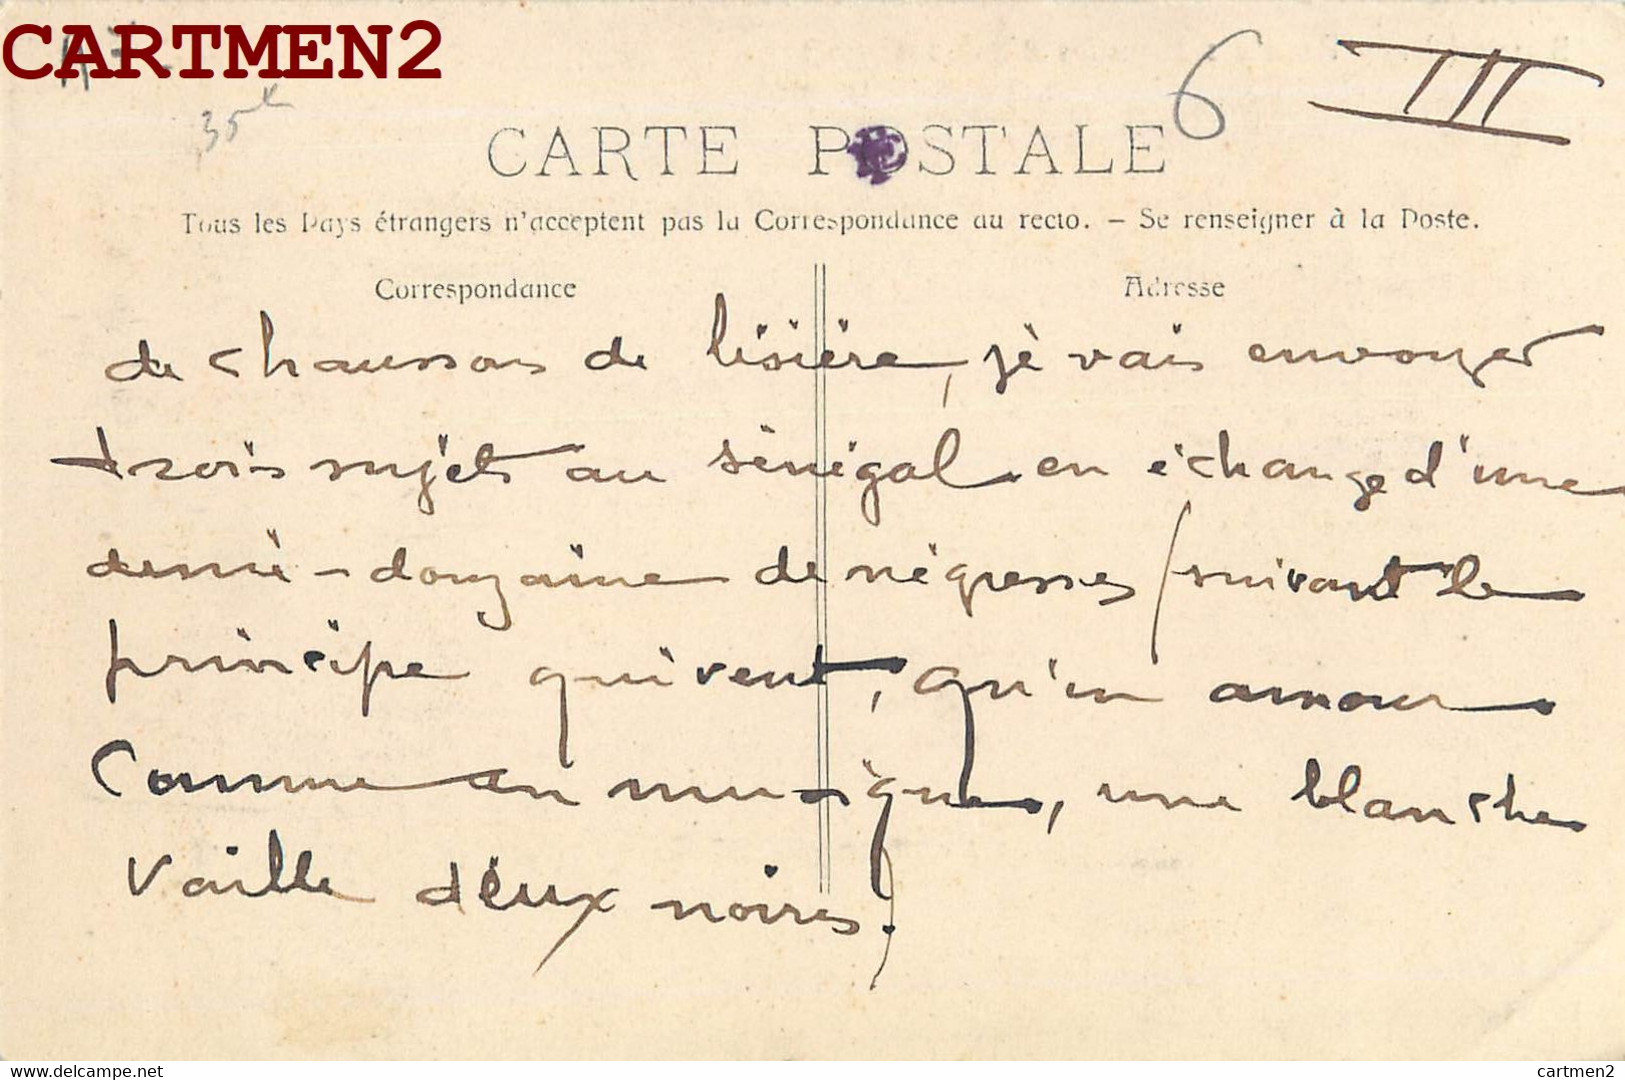 CARTMEN2
35
6
III
CARTE POSTALE
Tous les Pays étrangers n'acceptent pas la Correspondance au recto. – Se renseigner à la Poste.
Correspondance
Adresse
de chaussons de lisière, je vais envoyer
trois sujets au Sénégal en échange d'une
demi-douzaine de négresses (suivant le
principe qui veut, qu'en amour
comme en musique, une blanche
vaille deux noires).
delcampe.net
cartmen2